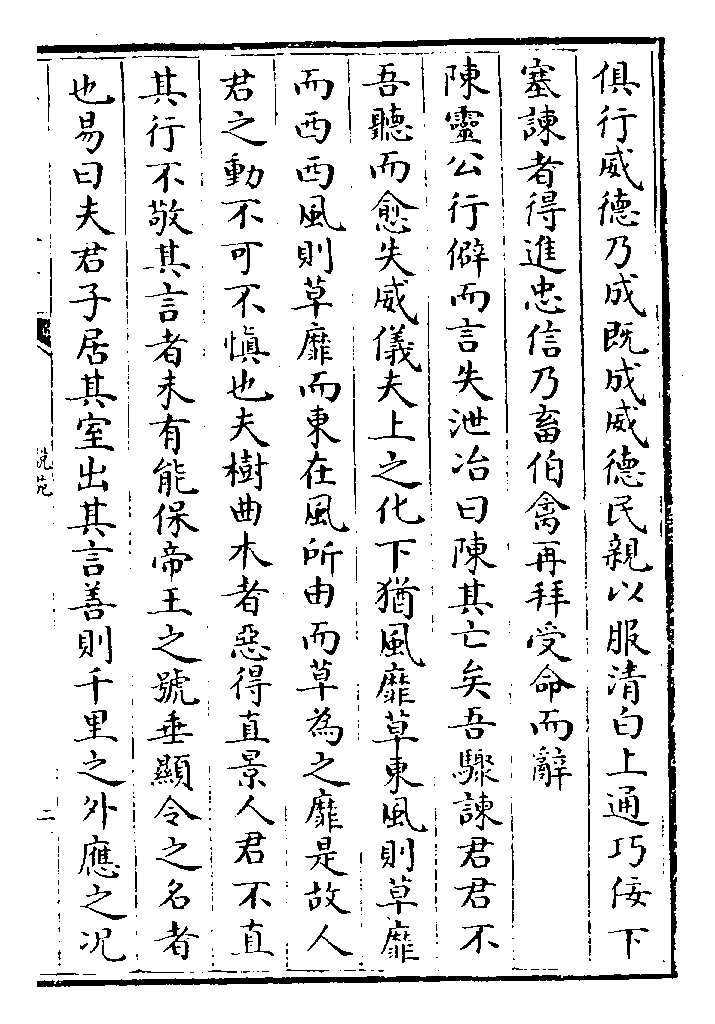 俱行威德乃成既成威德民親以服清白上通巧佞下
塞諫者得進忠信乃畜伯禽再拜受命而辭
陳靈公行僻而言失泄冶曰陳其亡矣吾驟諫君君不
吾聽而愈失威儀夫上之化下猶風靡草東風則草靡
而西西風則草靡而東在風所由而草為之靡是故人
君之動不可不慎也夫樹曲木者惡得直景人君不直
其行不敬其言者未有能保帝王之號垂顯令之名者
也易曰夫君子居其室出其言善則千里之外應之况
說苑
二